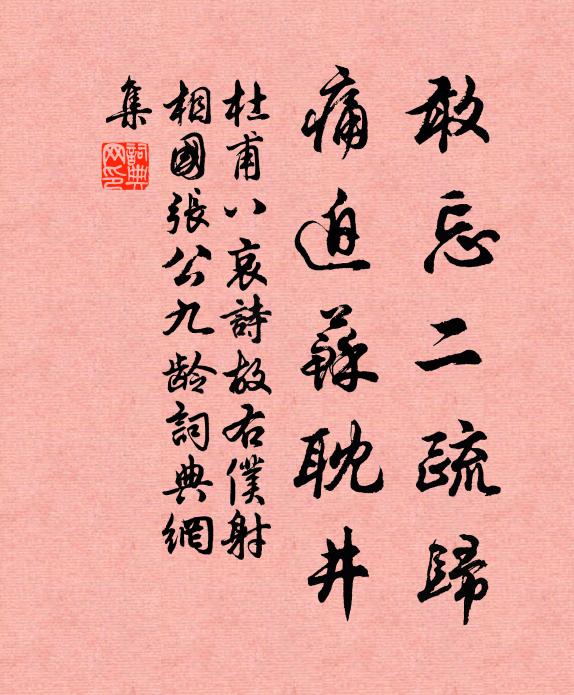 敢忘二疏歸
痛迫蘇耽井
杜甫八哀詩故右僕射
相國張公九齡詞典網
集
詞典
网印